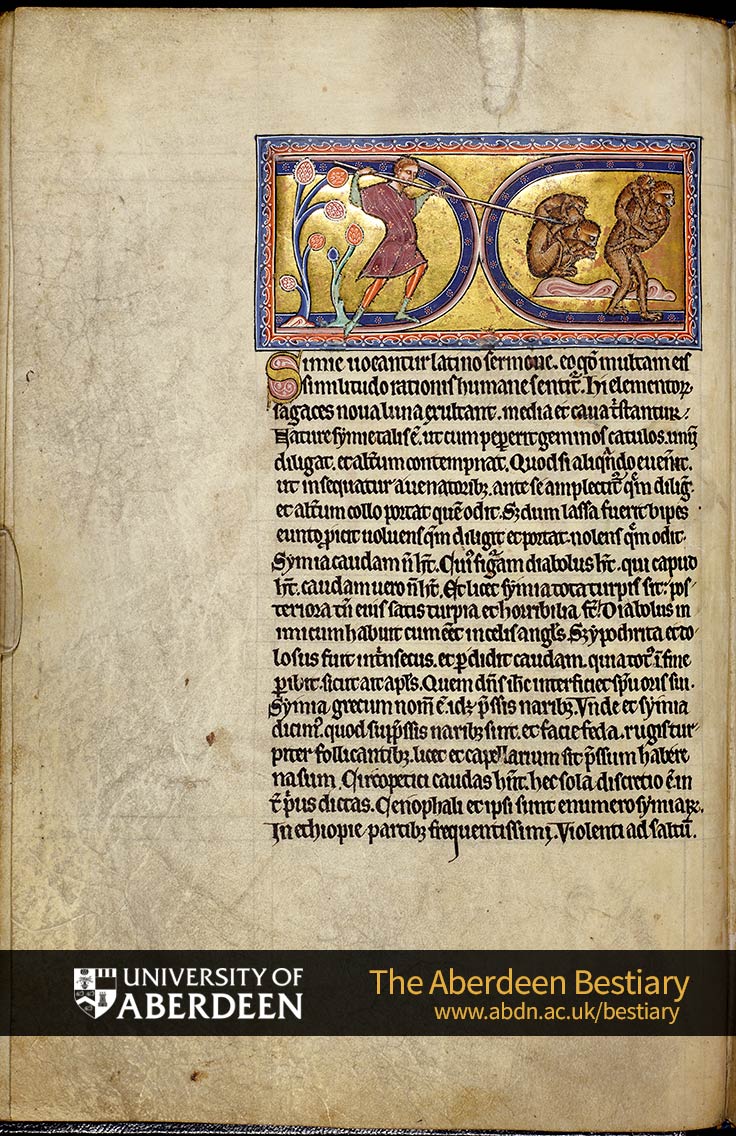 Simie uocantur latino sermone. eo qđ multam eis
similitudo rationis humane sentit̃. Hi elementoꝝ
sagaces noua luna exultant. media et caua tͥstantur.
Nature symie talis ē. ut cum peperit geminos catulos. unū
diligat. et alt̃um contempnat. Quod si aliqn̄do euen̄it.
ut insequatur a uenatoribꝫ. ante se amplectit᷑ qm̄ dilig̃.
et alt̃um collo portat quē odit. Sꝫ dum lassa fuerit bipes
eundo ꝓicit uoluens qm̄ diligit et portat nolens qm̄ odit.
Symia caudam n̄ ht̄. Cuiꝰ figam̃ diabolus ht̄. qui capud
ht̄. caudam uero n̄ ht̄. Et licet symia tota turpis sit: pos
teriora tn̄ eius satis turpia et horribilia st̄. Diabolus in
inicium habuit cum eēt in celis angl̄s. Sꝫ ypochrita et do
losus fuit int̃nsecus. et ꝑdidit caudam. quia totꝰ ī fine
ꝑibit. sicut ait apl̄s. Quem dn̄s ih̄c interficiet spū oris sui.
Symia grecum nom̄ ē. id÷ p̄ssis naribꝫ. Vnde et symia
dicimꝰ. quod supp̄ssis naribꝫ sint. et facie feda. rugis tur
piter follicantibꝫ. licet et capellarum sit p̄ssum habere
nasum. Circopetici caudas hn̄t. hec sola discretio ē in
t̃ pͥus dictas. Cenophali et ipsi sunt e numero symiaꝝ.
In ethiopie partibꝫ frequentissimi. Violenti ad saltū.
UNIVERSITY OF
ABERDEEN
The Aberdeen Bestiary
www.abdn.ac.uk/bestiary